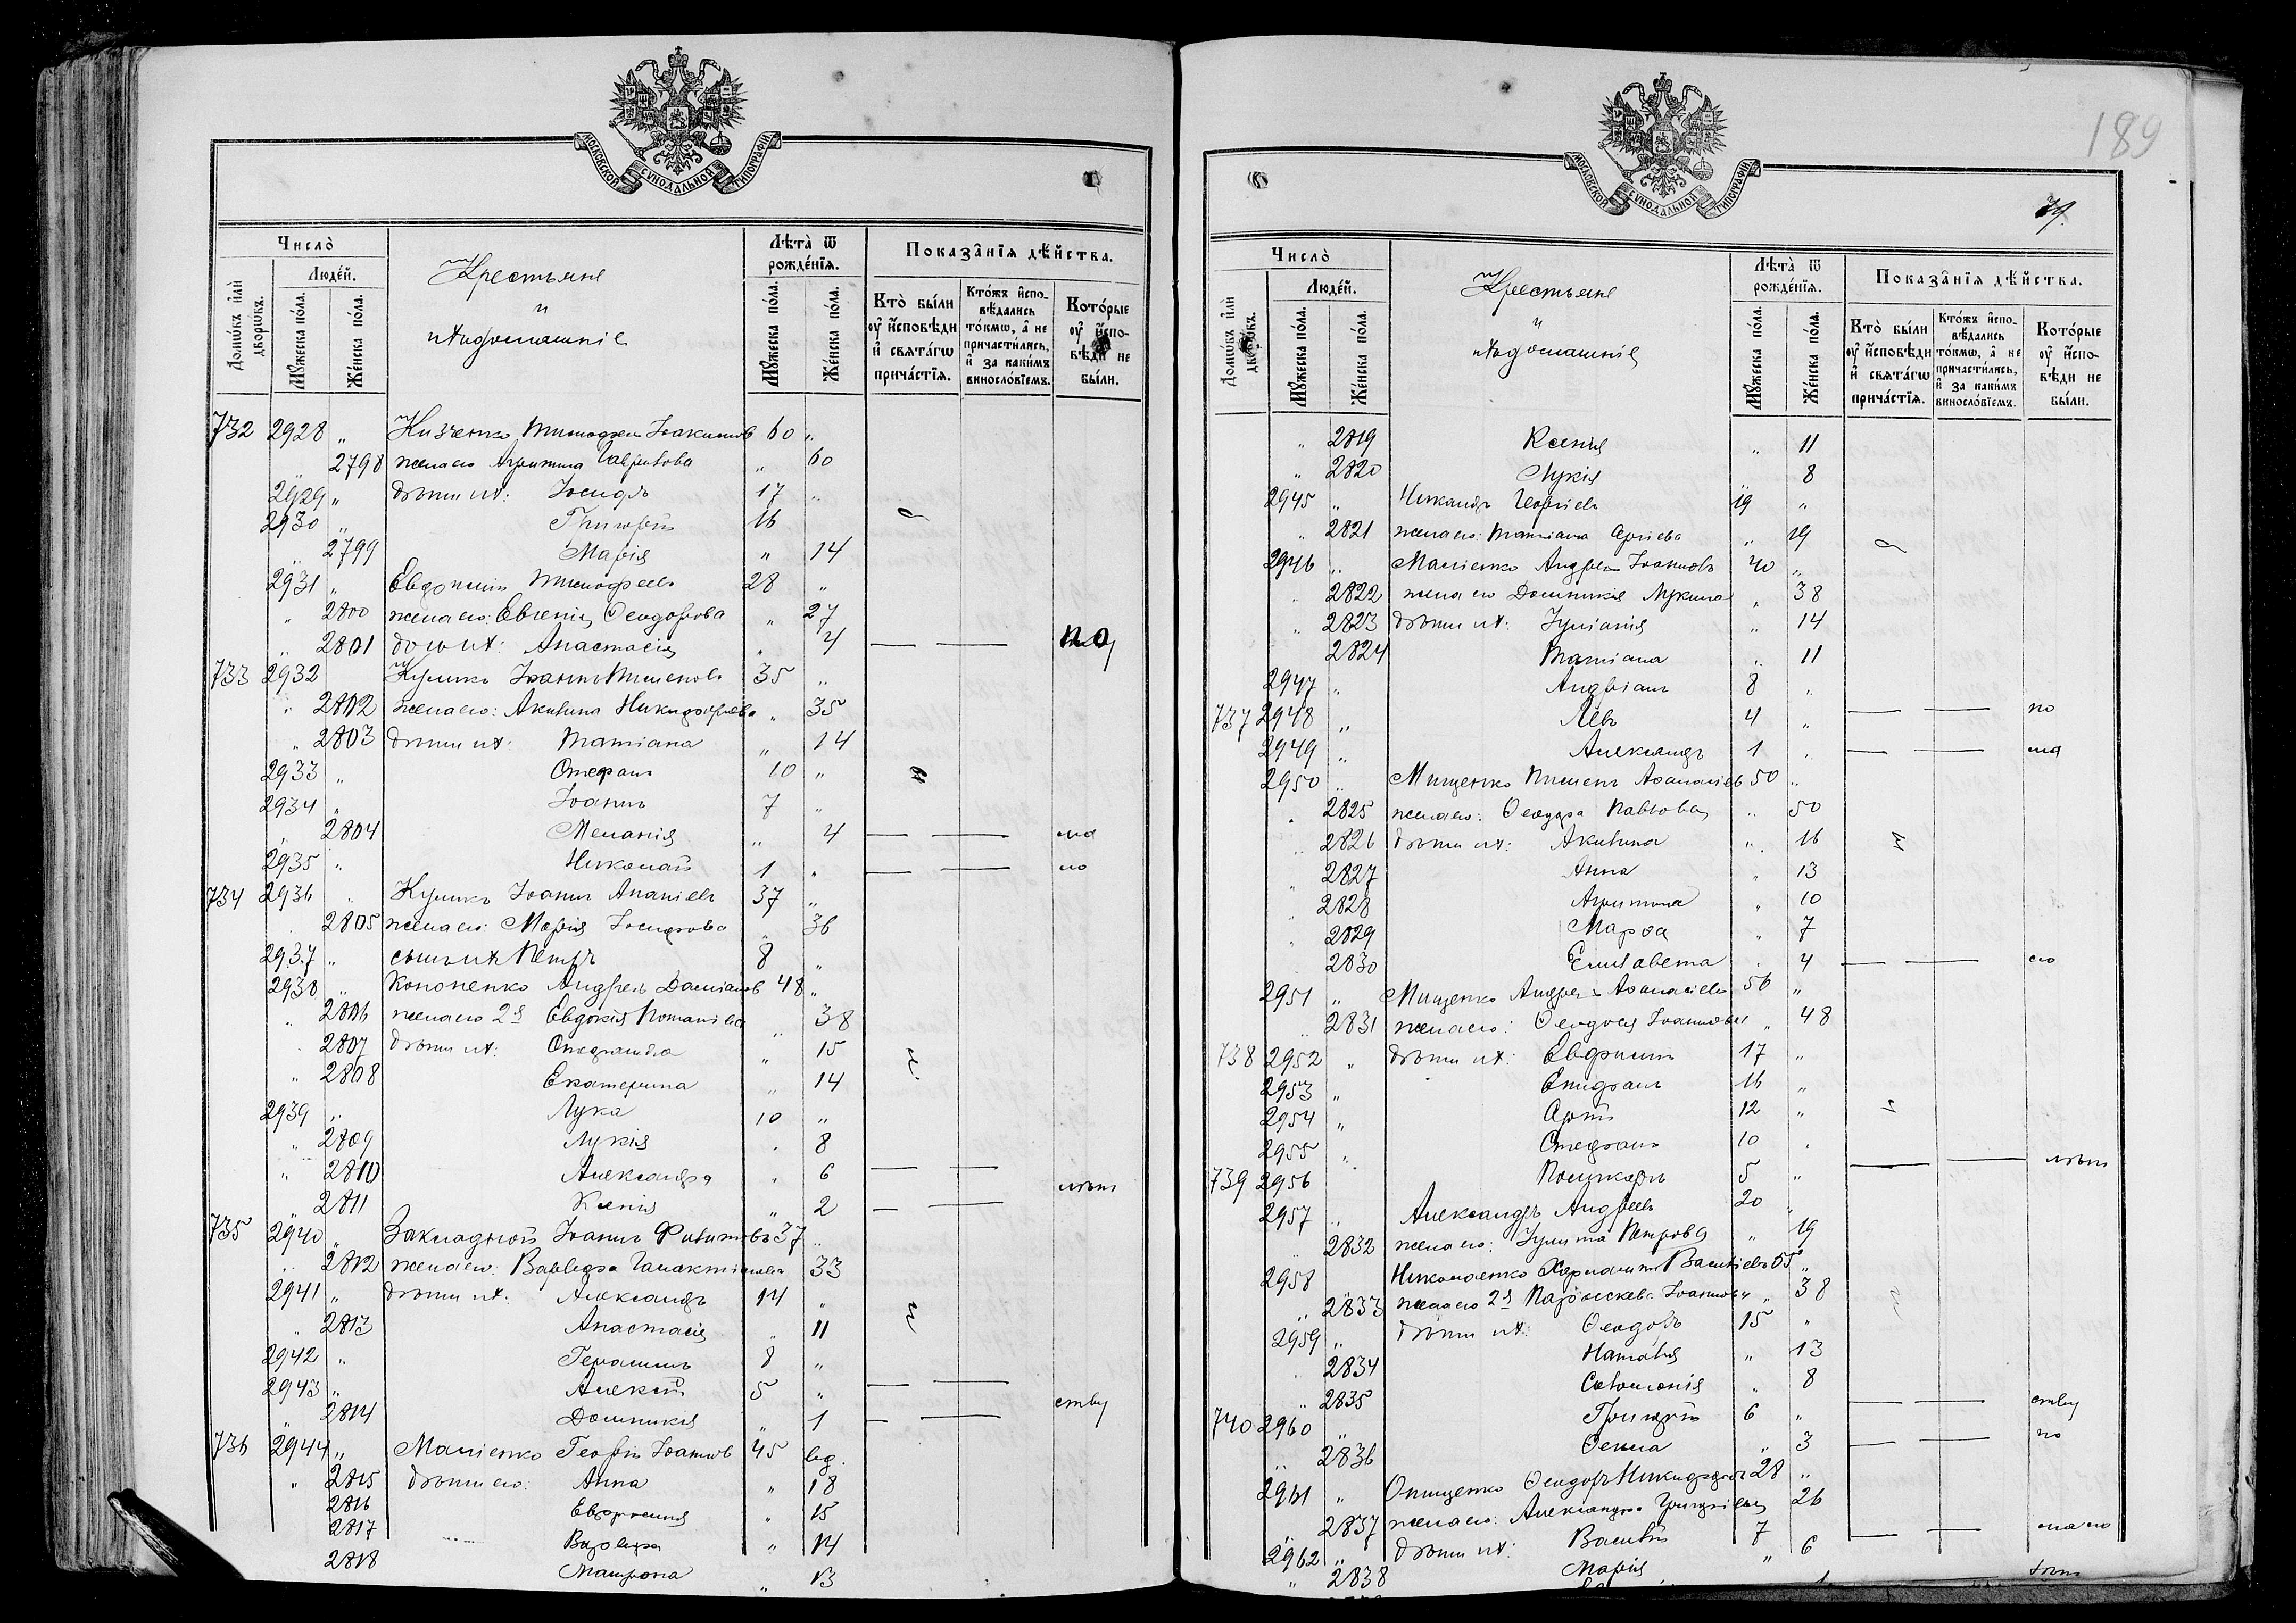 МОСКОВСКОЙ СѴНОДАЛЬНОЙ ТИПОГРАФІИ
Число̀
Домѡ́въ и҆лѝ дворѡ́въ.
Люде́й.
Мꙋ́жеска по́ла.
Же́нска по́ла.
Крестьяне
и
ихъ домашніе
Лѣ́та ѿ рожде́нїѧ.
Мꙋ́жеска по́ла.
Же́нска по́ла.
Показа̑нїѧ дѣ́йства.
Кто̀ бы́ли ᲂу҆ и҆сповѣ́ди и҆ свѧта́гѡ прича́стїѧ.
Кто́жъ и҆сповѣ́дались то́кмѡ, а҆ не причасти́лись, и҆ за каки́мъ виносло́вїемъ.
Кото́рые ᲂу҆ и҆сповѣ́ди не бы́ли.
732 2928 „ Тимофей Іоакимовъ 60 „
„ 2798 жена его Агрипина Гаврилова „ 60
2929 „ дѣти ихъ: Іосифъ 17 „
2930 „ Григорій 16
„ 2799 Марія „ 14
2931 „ Евфимій Тимофеевъ 28 „
„ 2800 жена его: Евгенія Ѳеодорова „ 27
„ 2801 дочь ихъ: Анастасія „ 4 — — по
733 2932 Куликъ Іоаннъ 35 „
„ 2802 жена его: Акилина Никифорова „ 35
„ 2803 дѣти ихъ: Татіана „ 14
2933 „ Стефанъ 10 „
2934 „ Іоаннъ 7 „
„ 2804 Меланія „ 4 — — ма
2935 „ Николай 1 „ — — ло
734 2936 „ Куликъ Іоаннъ Ананіевъ 37 „
2805 жена его: Марія Іосифова „ 36
2937 „ сынъ ихъ Петръ 8 „
2938 „ Кононенко Андрей Даміановъ 48 „
„ 2806 жена его 2я Евдокія Романіева „ 38
„ 2807 дѣти ихъ: „ 15
„ 2808 Екатерина „ 14
2939 „ Лука 10 „
„ 2809 Лукія „ 8
„ 2810 Александра „ 6 — —
2811 Ксенія „ 2 — — лѣтст
735 2940 „ Закладной Іоаннъ Филиповъ 37 „
„ 2812 жена его: Варвара Галактіонова 33
2941 „ дѣти ихъ: Александръ 14 „
„ 2813 Анастасія „ 11
2942 „ Герасимъ 8 „
2943 „ Алексій 5 „ — —
„ 2814 Домникія „ 1 — — ству
736 2944 „ Малієнко Георгій Іоанновъ 45 вд.
„ 2815 дѣти его: Анна „ 18
2816 Евфросинія „ 15
2817 Варвара „ 14
2818 Матрона „ 13
189
МОСКОВСКОЙ СѴНОДАЛЬНОЙ ТИПОГРАФІИ
Число̀
Домѡ́въ и҆лѝ дворѡ́въ.
Люде́й.
Мꙋ́жеска по́ла.
Же́нска по́ла.
Крестьяне
и
ихъ домашніе
Лѣ́та ѿ рожде́нїѧ.
Мꙋ́жеска по́ла.
Же́нска по́ла.
Показа̑нїѧ дѣ́йства.
Кто̀ бы́ли ᲂу҆ и҆сповѣ́ди и҆ свѧта́гѡ прича́стїѧ.
Кто́жъ и҆сповѣ́дались то́кмѡ, а҆ не причасти́лись, и҆ за каки́мъ виносло́вїемъ.
Кото́рые ᲂу҆ и҆сповѣ́ди не бы́ли.
„ 2819 Ксенія „ 11
„ 2820 Лукія „ 8
2945 „ Никандръ Георгіевъ 19 „
„ 2821 жена его: Татіана „ 19
2946 „ Малієнко Андрей Іоанновъ 40 „
2822 жена его Домникія Лукина „ 38
„ 2823 дѣти ихъ: Іуліанія „ 14
2824 Татіана „ 11
2947 „ Андріанъ 8 „
737 2948 „ Левъ 4 „ — — по
2949 „ Александръ 1 „ — — ма
2950 „ Мищенко Пименъ Аѳанасіевъ 50 „
„ 2825 жена его: Ѳеодора Павлова „ 50
„ 2826 дѣти ихъ: Акилина „ 16
„ 2827 Анна „ 13
„ 2828 Агрипина „ 10
„ 2829 Марѳа „ 7
2830 Елисавета „ 4 — — ло
2951 „ Мищенко Андрей Аѳанасіевъ 56 „
„ 2831 жена его: Ѳеодосія Іоаннова „ 48
738 2952 „ дѣти ихъ: Евфимій 17 „
2953 „ Епифанъ 16 „
2954 „ 12 „
2955 „ Стефанъ 10 „
739 2956 Поликарпъ 5 „ — — лѣтст
2957 „ Александръ Андреевъ 20 „
„ 2832 жена его: Іулита Петрова „ 19
2958 Николаенко Харлампій Васильевъ 55 „
„ 2833 жена его 2я Параскева Іоаннова „ 38
2959 „ дѣти ихъ: Ѳеодоръ 15 „
2834 Наталія „ 13
„ 2835 Соломонія „ 8
740 2960 „ Григорій 6 „ — — ству
„ 2836 Ѳекла „ 3 — — по
2961 „ Онищенко Ѳеодоръ Никифоровъ 28 „
2837 жена его: Александра Григоріева 26
2962 „ дѣти ихъ: Василій 7 — — мало
„ 2838 Марія „ 6